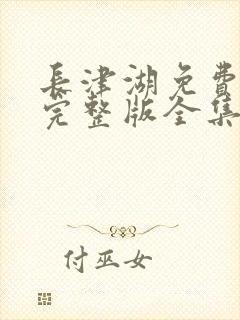 長津湖免費
完整版全集
付巫女